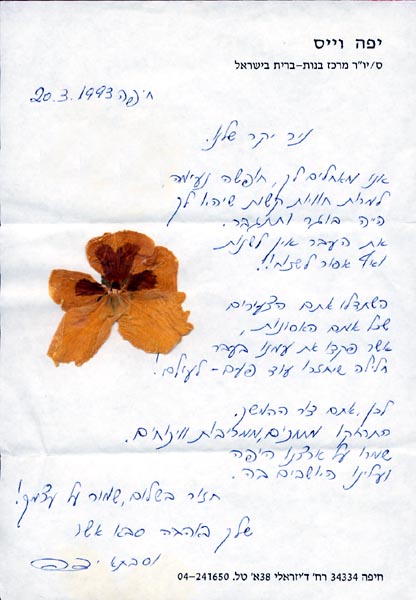 יפה וייס
ס/יו"ר מרכז בנות-ברית בישראל
חיפה 20.3.1993
ניר יקר שלנו.
אנו מאחלים לך, חופשה נעימה
למרות חוויות קשות שיהיו לך
היה בוגר ותתגבר.
את העבר אין לשנות
ואף אסור לשכוח!!
השתדלו אתם הצעירים
שכל אותם האסונות,
אשר פקדו את עמנו בעבר
חלילה שיחזרו עוד פעם - לעולם!
לכן, אתם דור ההמשך.
התרחקו ממחנים, ממריבות וויכוחים.
שמרו על ארצנו היפה
ועלינו היושבים בה.
חזור בשלום, שמור על עצמך!
שלך באהבה סבא אשר
וסבתא יפה
חיפה 34334 רח' ד'יזראלי 38א' טל. 04-241650